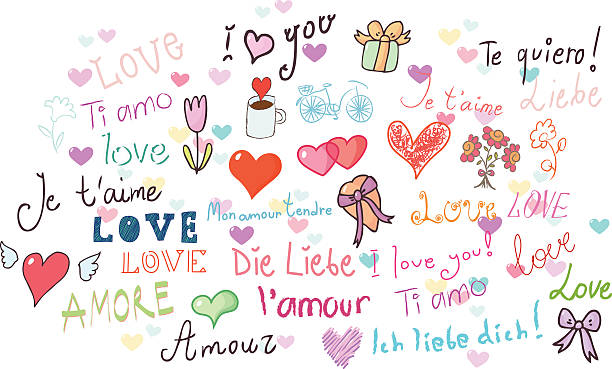 LOVE
I ♥ you
Te quiero!
Ti amo
Je t'aime
Liebe
love
Je t'aime
LOVE
Mon amour tendre
LOVE
LOVE
LOVE
Die Liebe
I love you!
love
AMORE
l'amour
Ti amo
Love
Amour
Ich liebe dich!